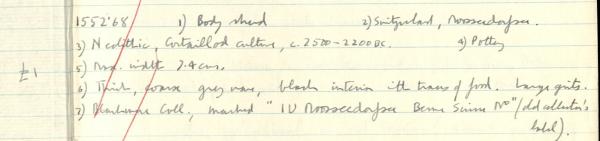 1552'68 1) Body sherd 2) Switzerland, Moosseedorfsee.
3) Neolithic, Cortaillod culture, c. 2500-2200 BC. 4) Pottery
5) Max. width 7.4 cms.
£1
6) Thick, coarse grey ware, black interior with traces of food. Large grits.
7) Blackmore Coll., marked "IU Moosseedorfsee Berne Suisse No" (old collector's
label).